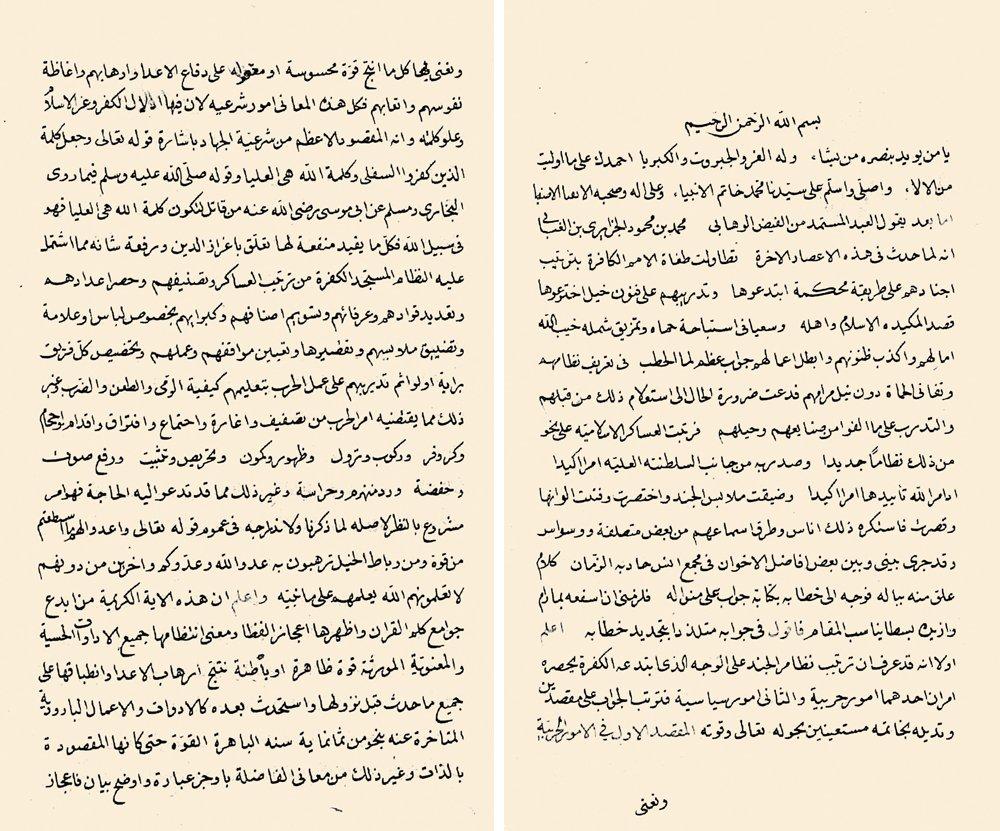 بسم الله الرحمن الرحيم
يا من يويد بنصره من يشاء وله العز والجبروت والكبريا احمدك على ما اوليت
من الالاء واصلي واسلم على سيدنا محمد خاتم الانبياء وعلى اله وصحبه
اما بعد يقول العبد المستمد من الفيض الوهابي محمد بن محمود الجزايري بن العنابي
انه لما حدث في هذه الاعصار الاخرة تطاولت طغاة الامم الكافرة بترتيب
اجنادهم على طريقة محكمة ابتدعوها وتدريبهم على فنون حيل اخترعوها
قصدا لمكيدة الاسلام واهله وسعيا في استباحة حماه وتمزيق شمله خيب الله
امالهم واكذب ظنونهم وابطل اعمالهم جواب عظم لما الخطب في تعريف نظامهم
وتفاني الحماة دون نيل مرامهم فدعت ضرورة الحال الى استعلام ذلك من قبلهم
والتدرب على ما الفوا من صنايعهم وحيلهم فرتبت العساكر الاسلامية على نحو
من ذلك نظاما جديدا وصدر به من جانب السلطنة العلية امرا اكيدا
ادام الله تاييدها امرا اكيدا وضيقت ملابس الجند واختصرت وفننت الوانها
وقصرت فاستنكره ذلك اناس وطرق اسماعهم من بعض متصلفة ووسواس
وقد جرى بيني وبين بعض افاضل الاخوان في مجمع انس جاد به الزمان كلام
علق منه بباله فوجه الى خطابه بكتابة جواب على منواله فلزمني ان اسعفه بمرام
وازيده بسطا يناسب المقام فاقول في جوابه متلذذا بتجديد خطابه اعلم
اولا انه قد عرف ان ترتيب نظام الجند على الوجه الذي ابتدعه الكفرة يحصره
امران احدهما امور حربية والثاني امور سياسية فترتب الجواب على مقصدين
وتذييله بخاتمه مستعينين بحوله تعالى وقوته المقصد الاول في الامور الحربية
ونعني
ونعني بها كل ما انتج قوة محسوسة او معقوله على دفاع الاعدا وارهابهم واغاظة
نفوسهم واتعابهم فكل هذه المعاني امور شرعيه لان فيها اذلال الكفر وعز الاسلام
وعلو كلمته وانه المقصود الاعظم من شرعية الجهاد باشارة قوله تعالى وجعل كلمة
الذين كفروا السفلى وكلمة الله هي العليا وقوله صلى الله عليه وسلم فيما روى
البخاري ومسلم عن ابي موسى رضي الله عنه من قاتل لتكون كلمة الله هي العليا فهو
في سبيل الله فكل ما يفيد منفعة لها تعلق باعزاز الدين ورفعة شانه مما اشتمل
عليه النظام المستجد للكفرة من ترتيب العساكر وتصنيفهم وحصر اعدادهم
وتعديد قوادهم وعرفائهم وتسويم اصنافهم وكبرايهم بخصوص لباس او علامة
وتضييق ملابسهم وتقصيرها وتعيين مواقفهم وعملهم وتخصيص كل فريق
براية اولوائم تدريبهم على عمل الحرب بتعليمهم كيفية الرمي والطعن والضرب غير
ذلك مما يقتضيه امر الحرب من تصفيف واغارة واجتماع وافتراق واقدام واحجام
وكر وفر وركوب ونزول وظهور وكون وتحريض وتثبيت ورفع صوت
وخفضة ورد منهزم وحراسة وغير ذلك مما قد تدعو اليه الحاجة فهو امر
مشروع بالنظر لاصله لما ذكرنا ولاندراجه في عموم قوله تعالى واعدوا لهم ما استطعتم
من قوة ومن رباط الخيل ترهبون به عدو الله وعدوكم واخرين من دونهم
لا تعلمونهم الله يعلمهم على ما نبينه واعلم ان هذه الاية الكريمة من ابدع
جوامع كلم القران واظهرها اعجاز الفظا ومعنى انتظامها جميع الادوات الحسية
والمعنوية المورثة قوة ظاهرة او باطنة تنتج ارهاب الاعدا وانطباقها على
جميع ما حدث قبل نزولها واستحدث بعده كالادوات والاعمال البارودية
المتاخرة عنه بنحو من ثمانماية سنه الباهرة القوة حتى كانها المقصودة
بالذات وغير ذلك من معاني الفاضلة باوجز عبارة واوضح بيان فاعجاز